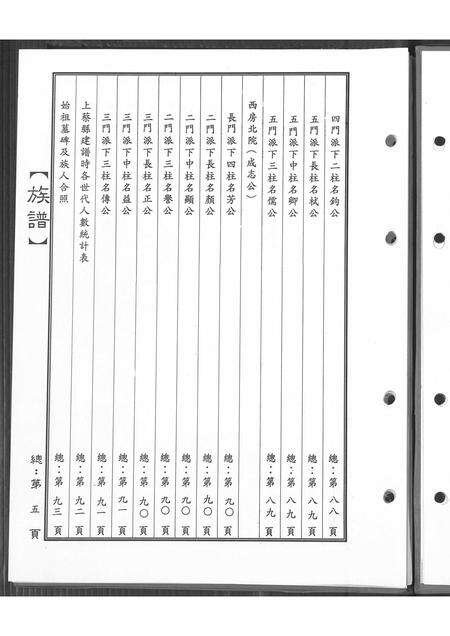 四門派下二柱名鈞公 總：第 八八 頁
五門派下長柱名栻公 總：第 八九 頁
五門派下中柱名卿公 總：第 八九 頁
五門派下三柱名儒公 總：第 八九 頁
西房北院（成志公）
長門派下四柱名芳公 總：第 九〇 頁
二門派下長柱名顏公 總：第 九〇 頁
二門派下中柱名顯公 總：第 九〇 頁
二門派下三柱名譽公 總：第 九〇 頁
三門派下長柱名正公 總：第 九〇 頁
三門派下中柱名益公 總：第 九一 頁
三門派下三柱名傳公 總：第 九一 頁
上蔡縣建譜時各世代人數統計表 總：第 九二 頁
始祖墓碑及族人合照 總：第 九三 頁
【族譜】 總：第 五 頁